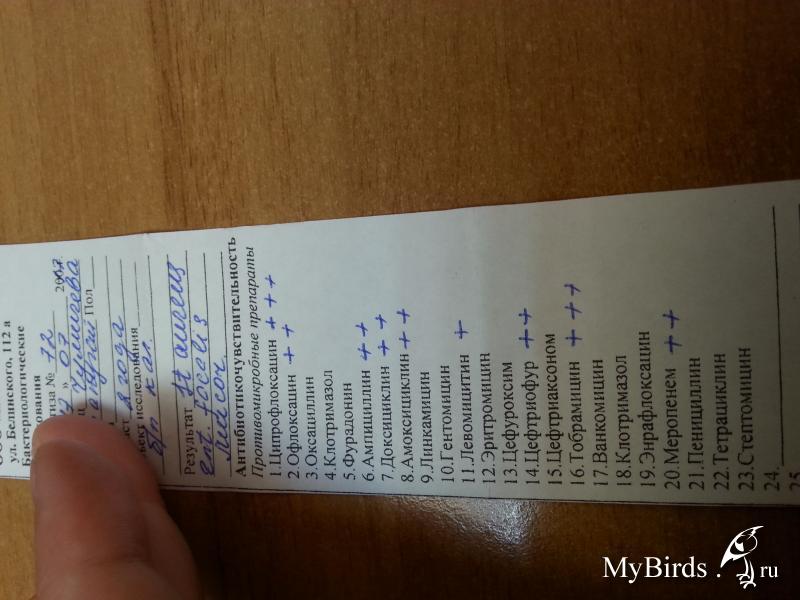 ул. Белинского, 112 а
Бактериологические
тиза № 72
07 20
Пол
8 года
ъект исследования
кал
Результат St aureus
ent. focalis
Антибиотикочувствительность
Противомикродные препараты
1.Ципрофлоксацин +++
2.Офлоксацин ++
3.Оксациллин
4.Клотримазол
5.Фурадонин
6.Ампициллин ++
7.Доксициклин ++
8.Амоксициклин ++
9.Линкамицин
10.Гентомицин
11.Левомоцитин +
12.Эритромицин
13.Цефуроксим
14.Цефтриофур ++
15.Цефтриаксоном
16.Тобрамицин +++
17.Ванкомицин
18.Клотримазол
19.Энрафлоксацин
20.Меропенем ++
21.Пенициллин
22.Тетрациклин
23.Стептомицин
24.
25.
MyBirds.ru